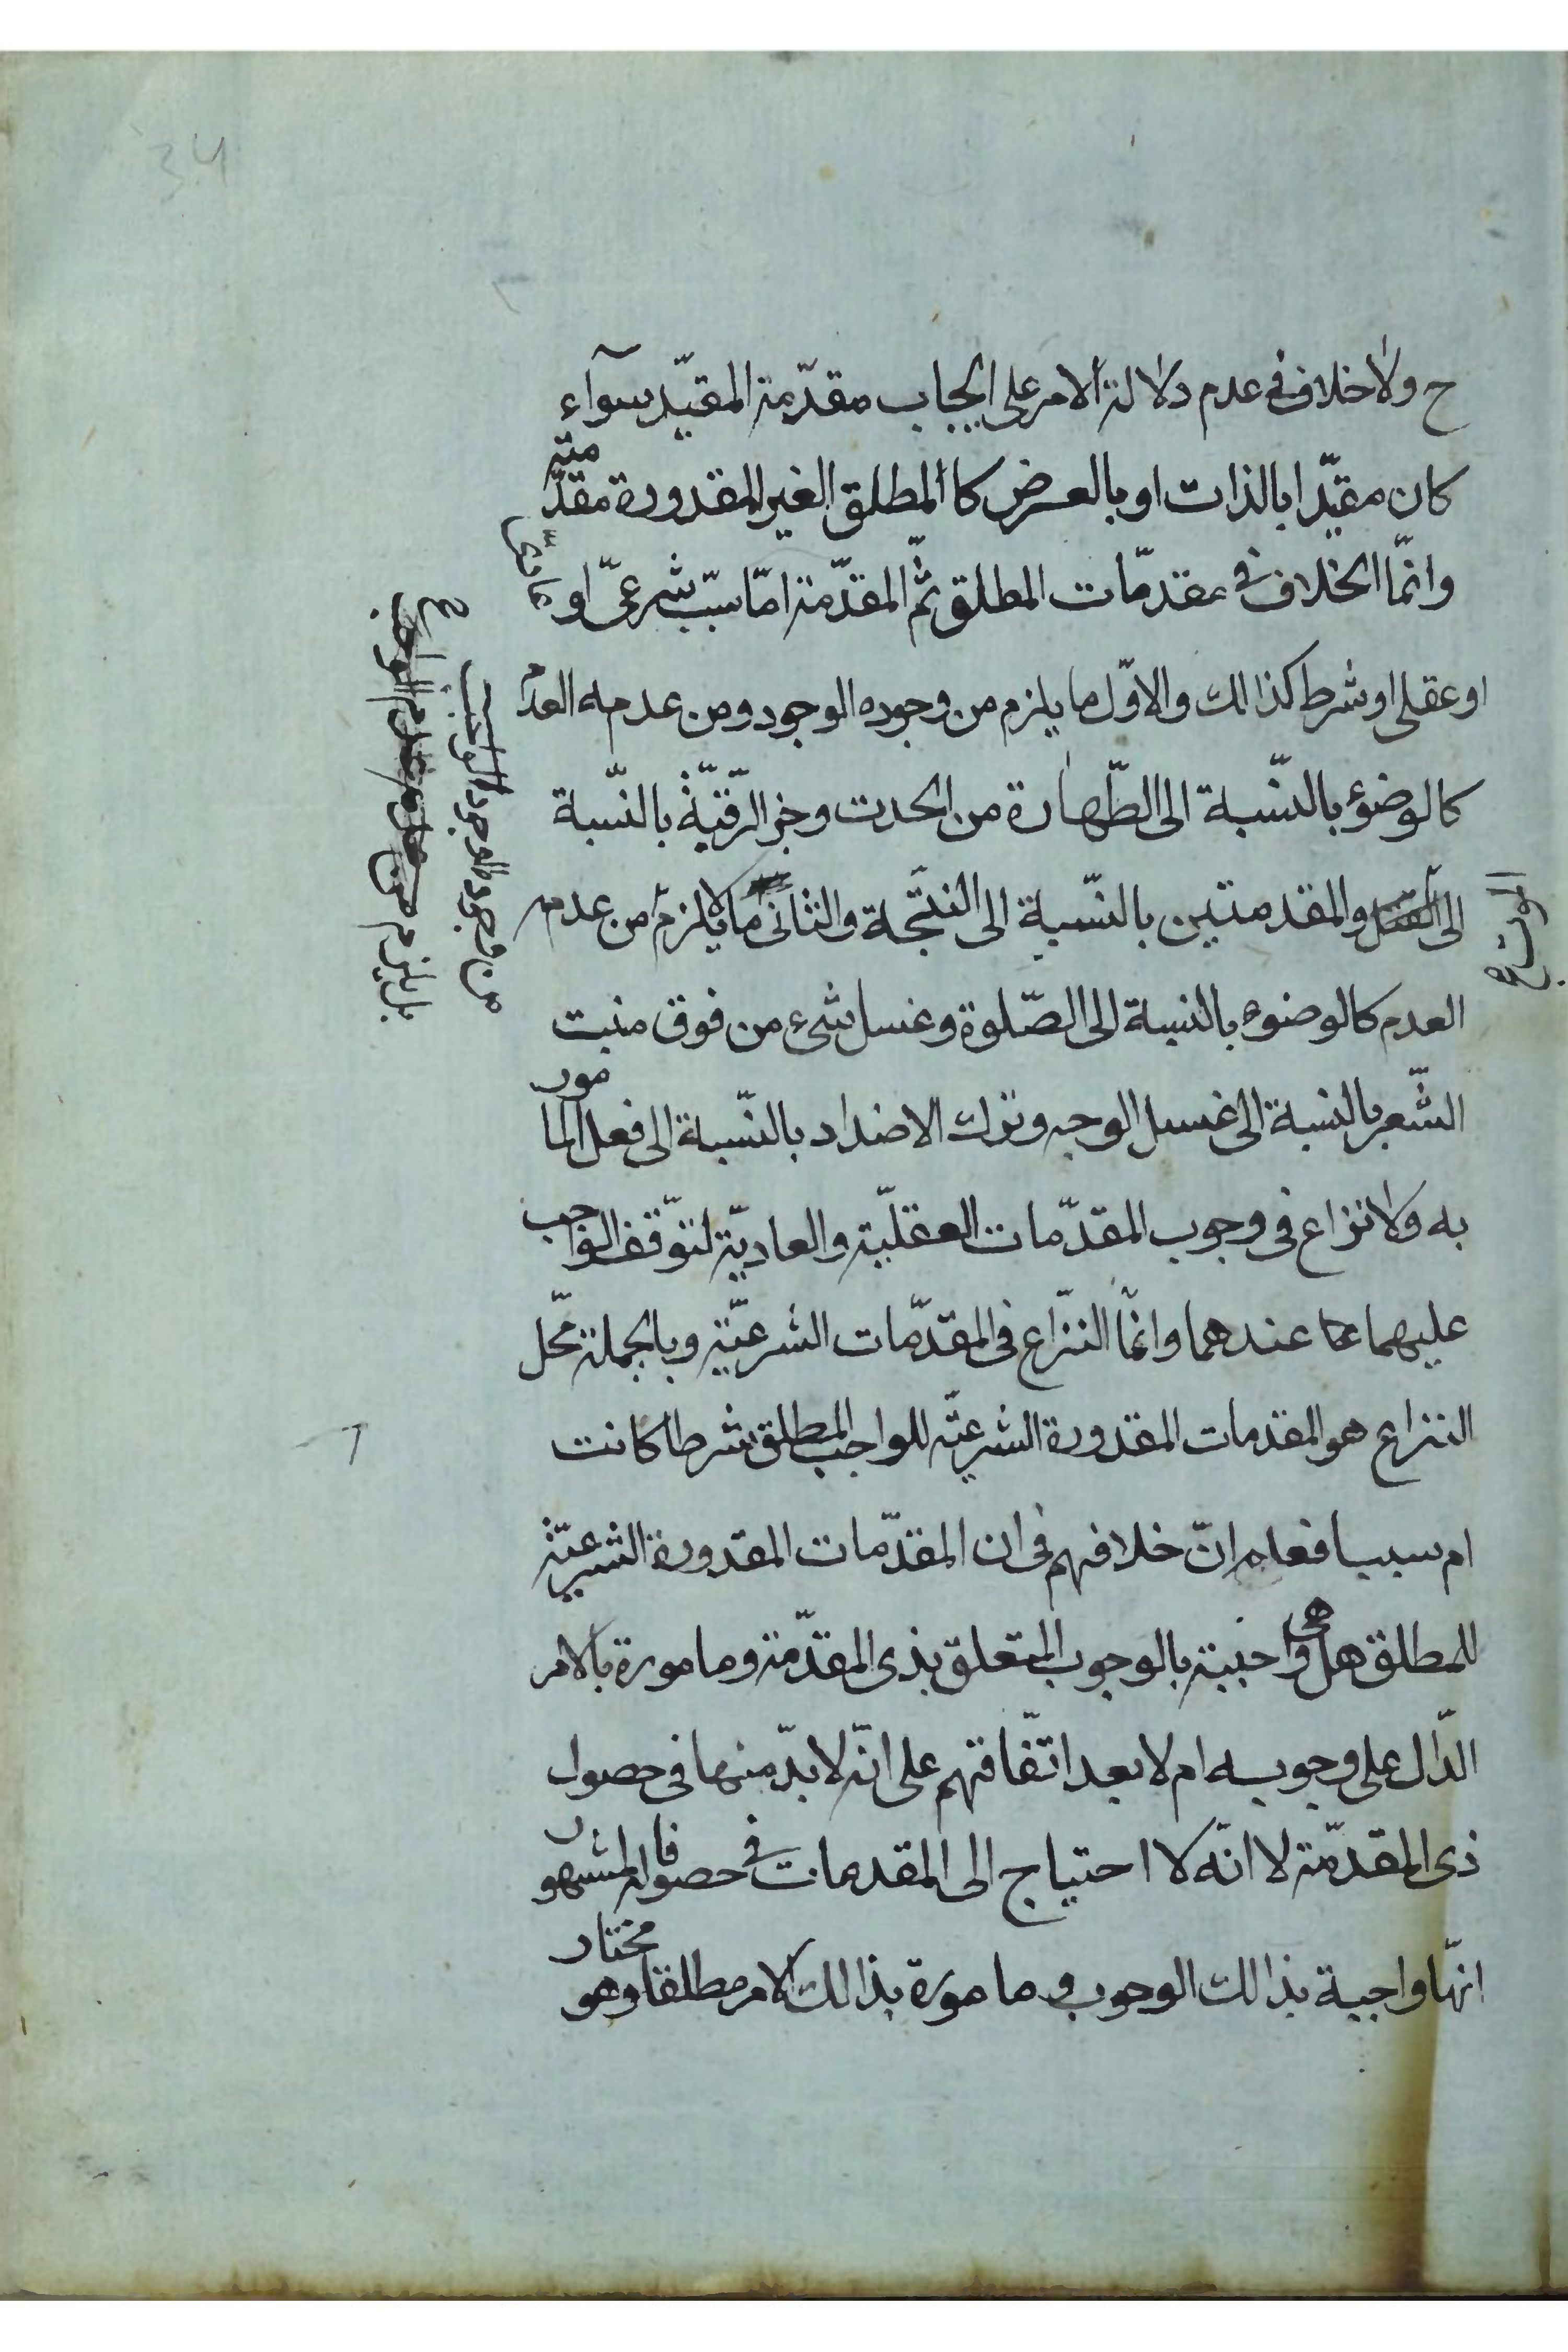 ح ولا خلاف فى عدم دلالة الامر على ايجاب مقدّمة المقيّد سوآء
كان مقيّدا بالذات او بالعرض كالمطلق الغير المقدورة مقدّمته
وانّما الخلاف فى مقدّمات المطلق ثمّ المقدّمة امّا سبب شرعىّ او عادىّ
او عقلى او شرط كذالك والاوّل ما يلزم من وجوده الوجود ومن عدمه العدم
كالوضوء بالنّسبة الى الطّهارة من الحدث وحزّ الرّقبة بالنّسبة
الى القتل والمقدمتين بالنّسبة الى النتيجة والثانى ما يلزم من عدمه
العدم كالوضوء بالنسبة الى الصّلوة وغسل شىء من فوق منبت
الشّعر بالنسبة الى غسل الوجه وترك الاضداد بالنّسبة الى فعل المامور
به ولا نزاع فى وجوب المقدّمات العقليّة والعاديّة لتوّقف الواجب
عليهما عندهما وانّما النّزاع فى المقدّمات الشرعيّة وبالجملة محّل
النزاع هو المقدمات المقدورة الشرعيّه للواجب المطلق شرطا كانت
ام سببا فعلم انّ خلافهم فى ان المقدّمات المقدورة الشرعيّة
للمطلق هل هى واجبة بالوجوب المتعلق بذى المقدّمة ومامورة بالامر
الدّال على وجوبه ام لا بعد اتّفاقهم على انّه لا بدّ منها فى حصول
ذى المقدّمة لا انّه لا احتياج الى المقدمات فى حصوله فالمشهور
انّها واجبة بذالك الوجوب ومامورة بذالك الامر مطلقا وهو مختار
من وجوده الوجود الواجب
بل يلزم من عدمه عدم الواجب
الموت
34